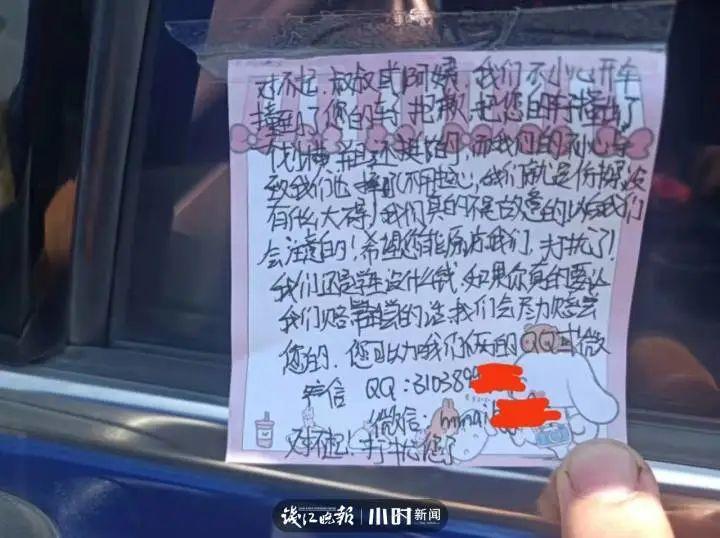 对不起,叔叔或阿姨,我们不小心开车
撞到了你的车子抱歉,把您的车子撞出了
划横,并且还挺长的,而我们的不小心
致我们也摔 不用担心,我们就是伤 没
有什么大碍!我们真的不是故意的以后我们
会注意的!希望您能原谅我们,打扰了!
我们还是学生没什么钱,如果你真的要让
我们赔偿的话,我们会尽力赔尝
您的,您可以加我们俩的QQ或微
信 QQ:310389
微信:
对不起!打扰您了
钱江晚报 小时新闻